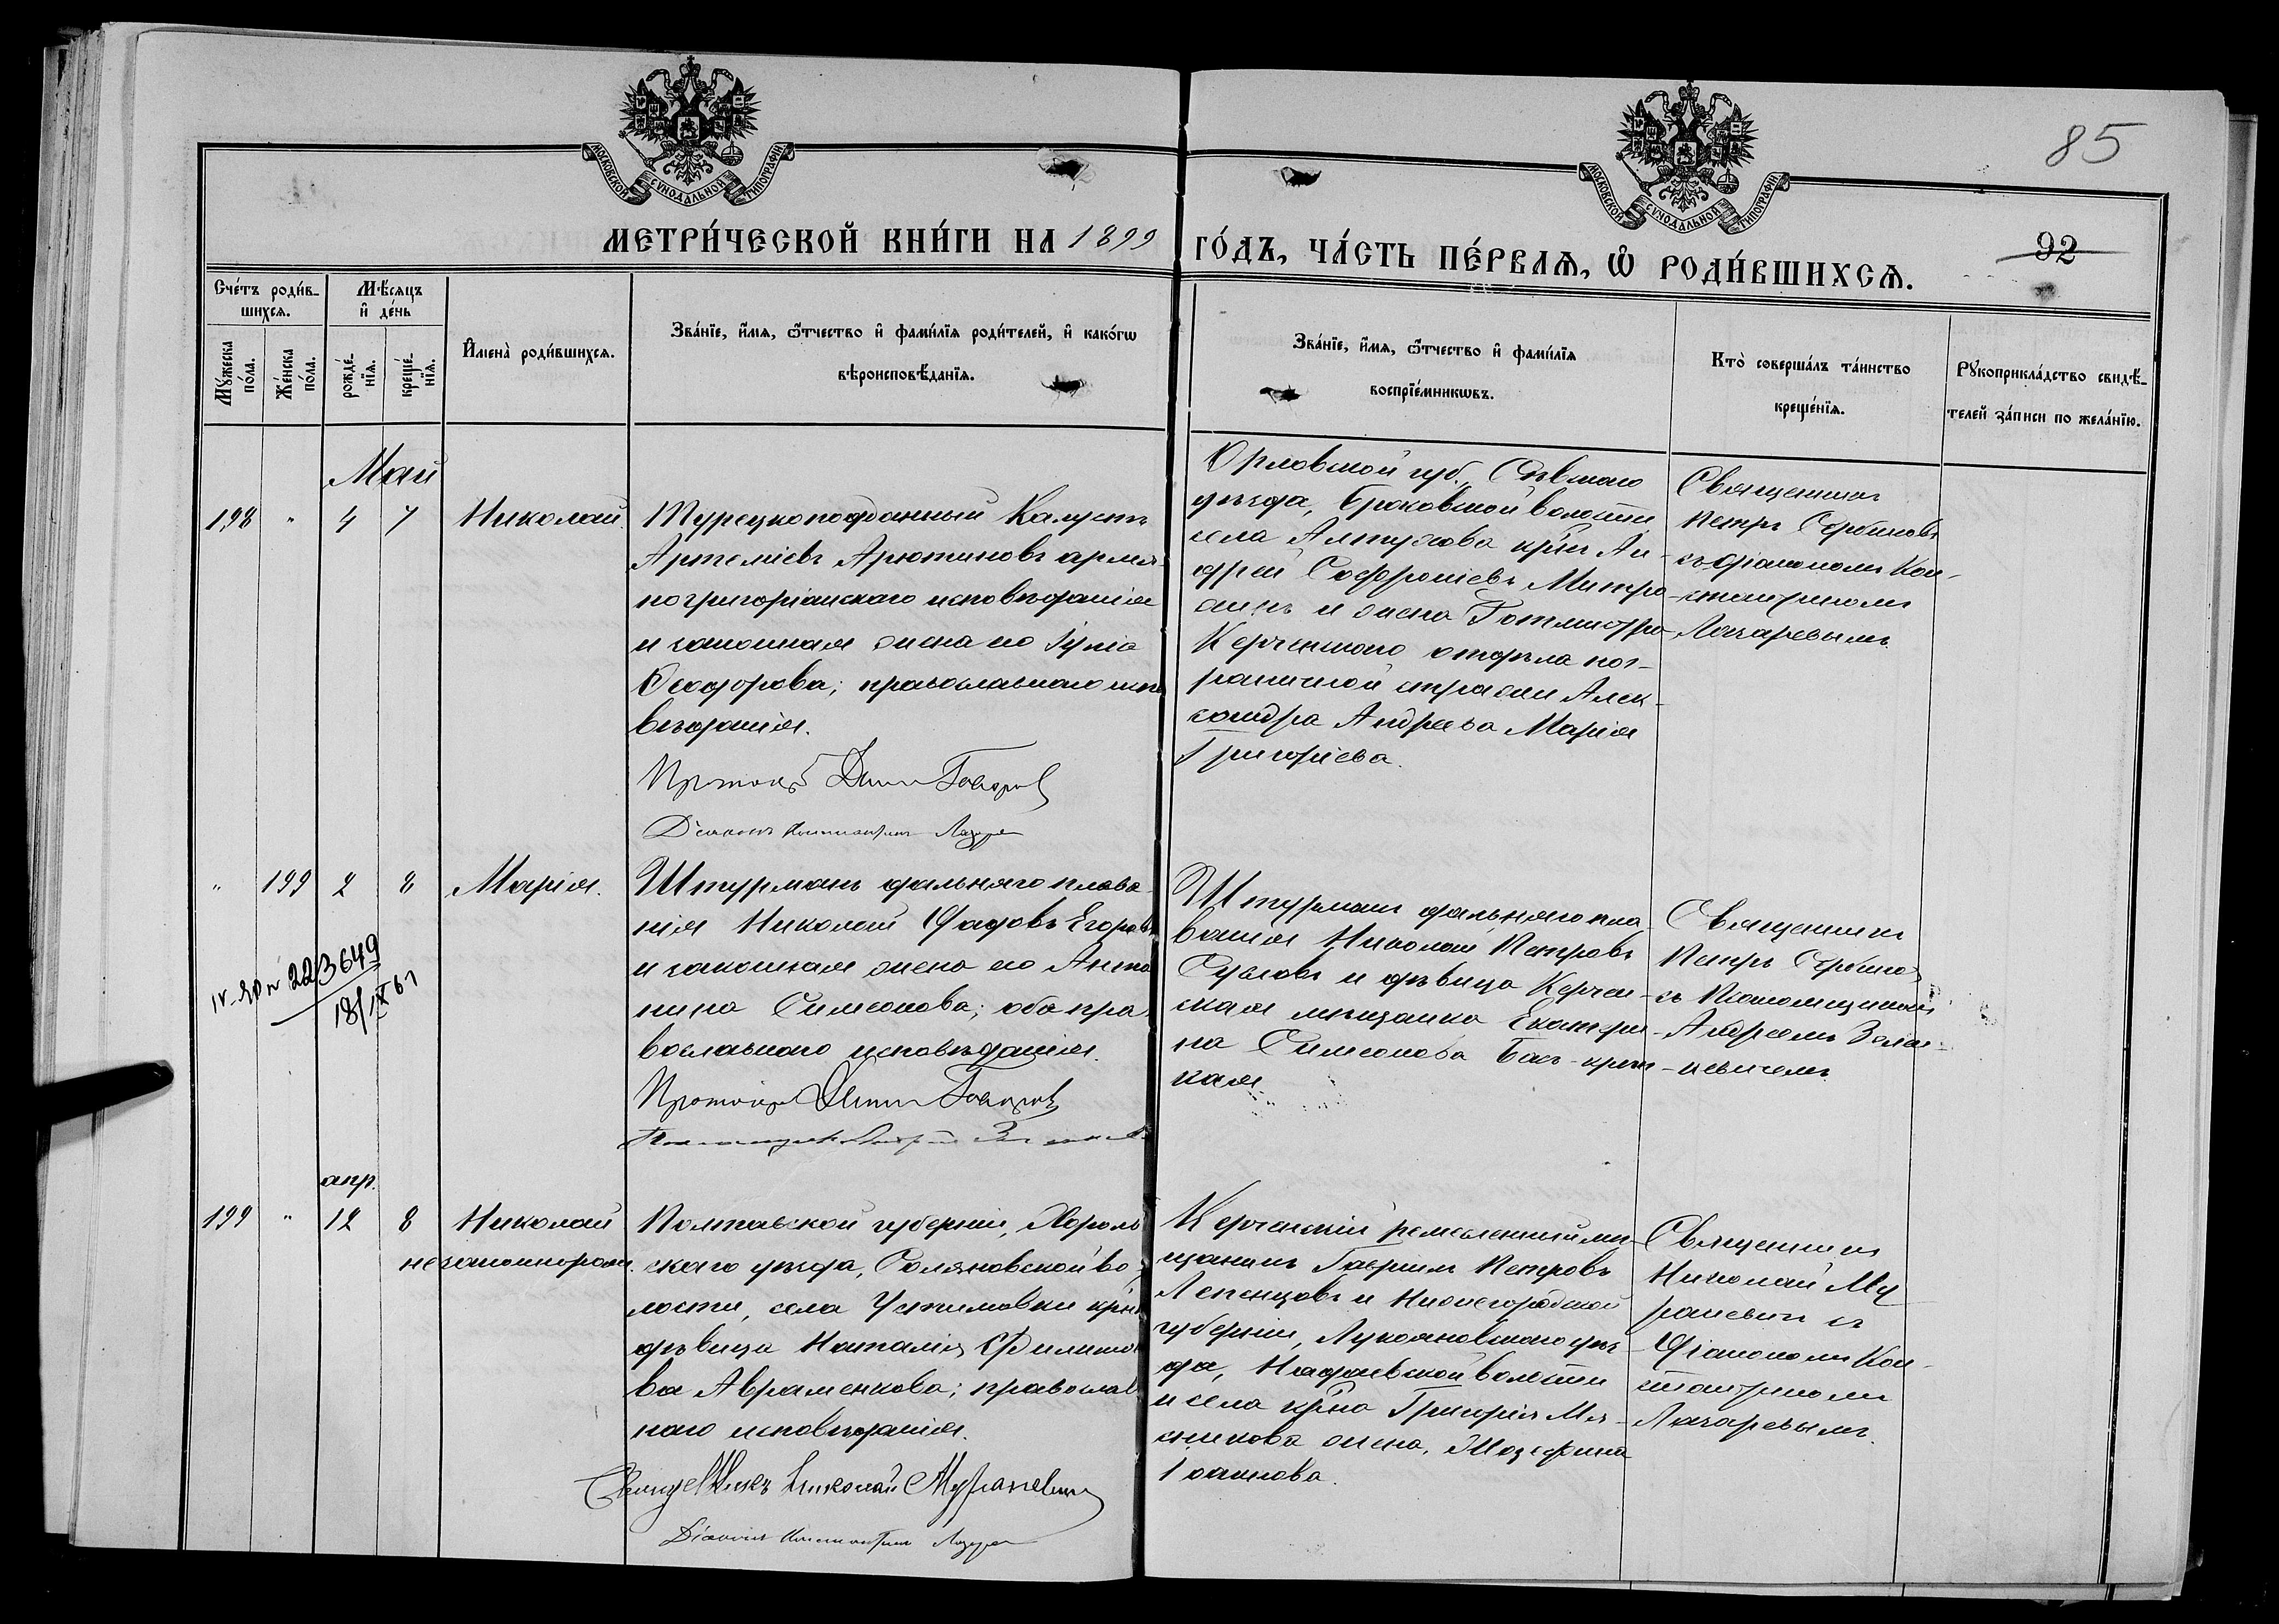 МОСКОВСКОЙ СѴНОДАЛЬНОЙ ТИПОГРАФІИ
МОСКОВСКОЙ СѴНОДАЛЬНОЙ ТИПОГРАФІИ
85
МЕТРИ́ЧЕСКОЙ КНИ́ГИ НА 1899
ГО́ДЪ, ЧА́СТЬ ПЕ́РВАѦ, Ѽ РОДИ́ВШИХСѦ.
92
Сче́тъ роди́в-
шихсѧ.
Мꙋ́жеска
по́ла.
Же́нска
по́ла.
Мѣ́сяцъ
и҆ де́нь
рожде́-
нїѧ.
креще́-
нїѧ.
И҆мена̀ роди́вшихсѧ.
Зва́нїе, и҆́мѧ, ѻ҆́тчество и҆ фами́лїѧ роди́телей, и҆ како́гѡ
вѣроисповѣ́данїѧ.
Зва́нїе, и҆́мѧ, ѻ҆́тчество и҆ фами́лїѧ
воспрїе́мникѡвъ.
Кто̀ соверша́лъ та́инство
креще́нїѧ.
Рꙋкоприкла́дство свидѣ́-
телей за́писи по жела́нїю.
Май
198 " 4 7 Николай.
Турецкоподданный Калустъ
Артеміевъ Арютиновъ армя-
но григоріанскаго исповѣданія
и законная жена его Іулія
Ѳеодорова; православнаго испо
вѣданія.
Протоіер
Діаконъ Константинъ Лазарев
Орловской губ., Сѣвскаго
уѣзда, волости
села Алтухова кр-нъ Ан-
дрей Софроніевъ Митро-
и жена Ротмистра
Керченскаго отдѣла пог-
раничной стражи Алек-
сандра Андреева Марія
Григоріева.
Священникъ
Петръ Сербиновъ
съ діакономъ Кон-
стантиномъ
Лазаревымъ.
" 199 2 8 Марія.
Штурманъ дальняго плава-
нія Николай Ѳадовъ Егоровъ
и законная жена его Анто
нина Симеонова; оба пра-
вославнаго исповѣданія.
Протоіер
223649
18/IX 61
Штурманъ дальняго пла-
ванія Николай Петровъ
Сусловъ и дѣвица Керчен-
ская мѣщанка Екатери-
на Симеонова
кая
Священникъ
Петръ Сербинов
съ Псаломщикомъ
Андреемъ
апр.
199 " 12 8 Николай
незаконнорожд.
Полтавской губерніи, Хороль
скаго уѣзда, во-
лости, села Устимовки кр-ка
дѣвица Наталія Филиппо
ва Авраменкова; православ
наго исповѣданія.
Священникъ Николай Мураневич
Діаконъ Константинъ Лазарев
Керченскій ремесленный мѣ-
щанинъ Гавріилъ Петровъ
Лепенцовъ и Нижегородской
губерніи, Лукояновскаго уѣз
да, волости
и села кр-на Григорія Мя-
сникова жена,
Іоаннова.
Священникъ
Николай Му
раневичъ съ
Діакономъ Кон-
стантиномъ
Лазаревымъ.